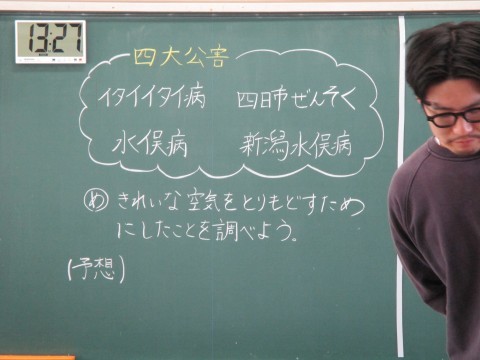 13:27
四大公害
イタイイタイ病 四日市ぜんそく
水俣病 新潟水俣病
め きれいな空気をとりもどすため
にしたことを調べよう。
(予想)